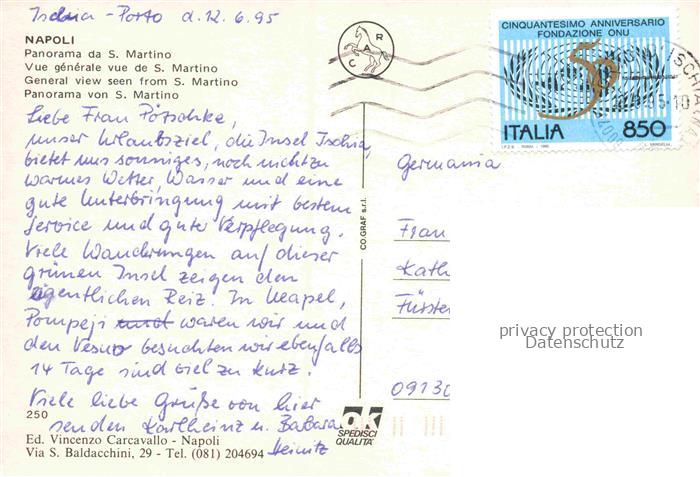 Ischia - Porto d. 12.6.95
NAPOLI
Panorama da S. Martino
Vue générale vue de S. Martino
General view seen from S. Martino
Panorama von S. Martino
Liebe Frau Pötschke,
unser Urlaubsziel, die Insel Ischia,
bietet uns sonniges, noch nicht zu
warmes Wetter, Wasser und eine
gute Unterbringung mit bestem
Service und guter Verpflegung.
Viele Wanderungen auf dieser
grünen Insel zeigen den
eigentlichen Reiz. In Neapel,
Pompeji und waren wir und
den Vesuv besuchten wir ebenfalls
14 Tage sind viel zu kurz.
Viele liebe Grüße von hier
senden Karlheinz u. Barbara
Heinitz
250
Ed. Vincenzo Carcavallo - Napoli
Via S. Baldacchini, 29 - Tel. (081) 204694
CAR
CO.GRAF s.r.l.
OK
SPEDISCI
QUALITA'
CINQUANTESIMO ANNIVERSARIO
FONDAZIONE ONU
50
ITALIA 850
I.P.Z.S. - ROMA - 1995
ISCHIA
95-10
Germania
Frau
Kath
Fürsten
0913
privacy protection
Datenschutz